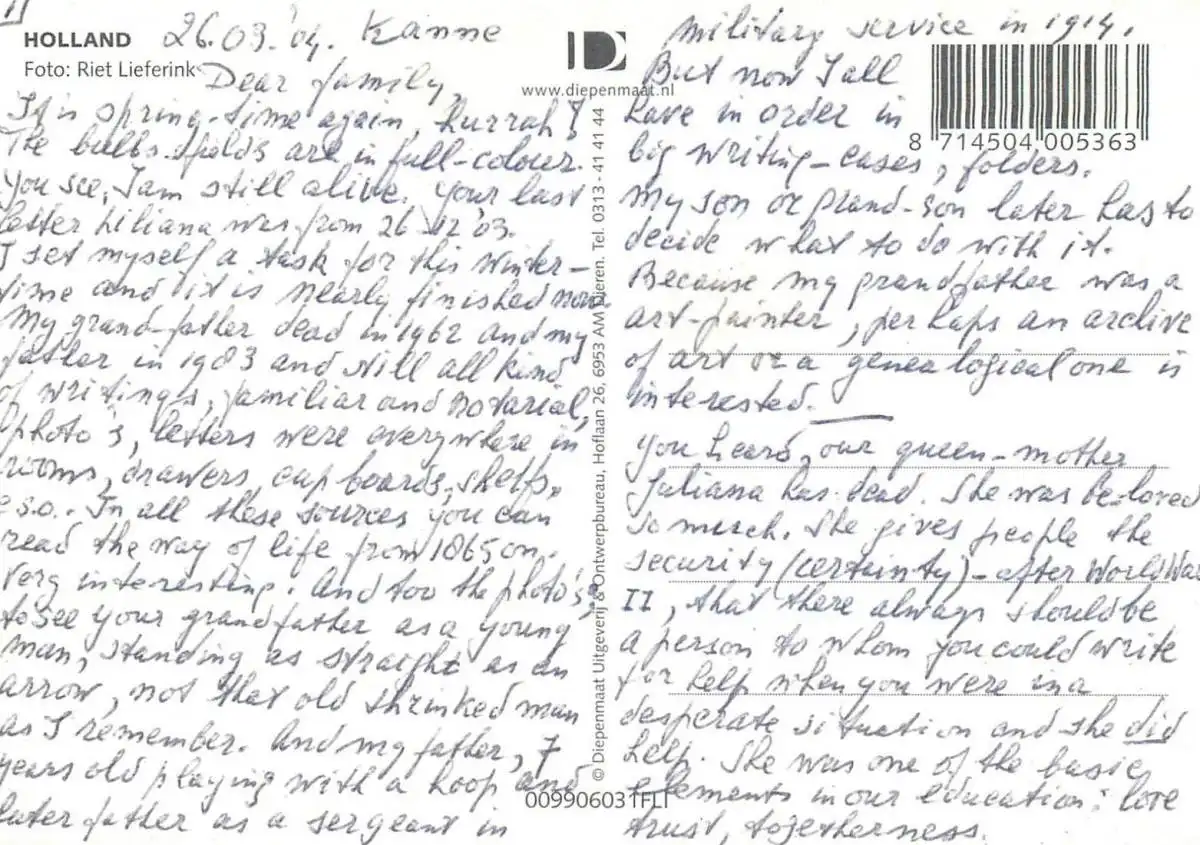 1
HOLLAND
Foto: Riet Lieferink
26.03.'04. Kanne
Dear family,
It is spring-time again, hurrah!
The bulbs-fields are in full-colour.
You see, I am still alive. Your last
letter Liliana was from 26-12'03.
I set myself a task for this winter-
time and it is nearly finished now.
My grand-father dead in 1962 and my
father in 1983 and still all kind
of writings, familiar and notarial,
photo's, letters were everywhere in
rooms, drawers, cupboards, shelfs,
e.s.o.. In all these sources you can
read the way of life from 1865 on.
Very interesting. And too the photo's,
to see your grandfather as a young
man, standing as straight as an
arrow, not that old shrinked man
as I remember. And my father, 7
years old playing with a hoop and
later father as a sergeant in
D
www.diepenmaat.nl
© Diepenmaat Uitgeverij & Ontwerpbureau, Hoflaan 26, 6953 AM Dieren. Tel. 0313 - 41 41 44
009906031FLI
military service in 1914.
But now I all
have in order in
big writing-cases, folders.
My son or grand-son later has to
decide what to do with it.
Because my grandfather was a
art-painter, perhaps an archive
of art or a genealogical one is
interested.
You heard, our queen-mother
Juliana has dead. She was be-loved
so much. She gives people the
security (certainty) - after World War
II, that there always should be
a person to whom you could write
for help when you were in a
desperate situation and she did
help. She was one of the basic
elements in our education: love
trust, togetherness.
8 714504 005363